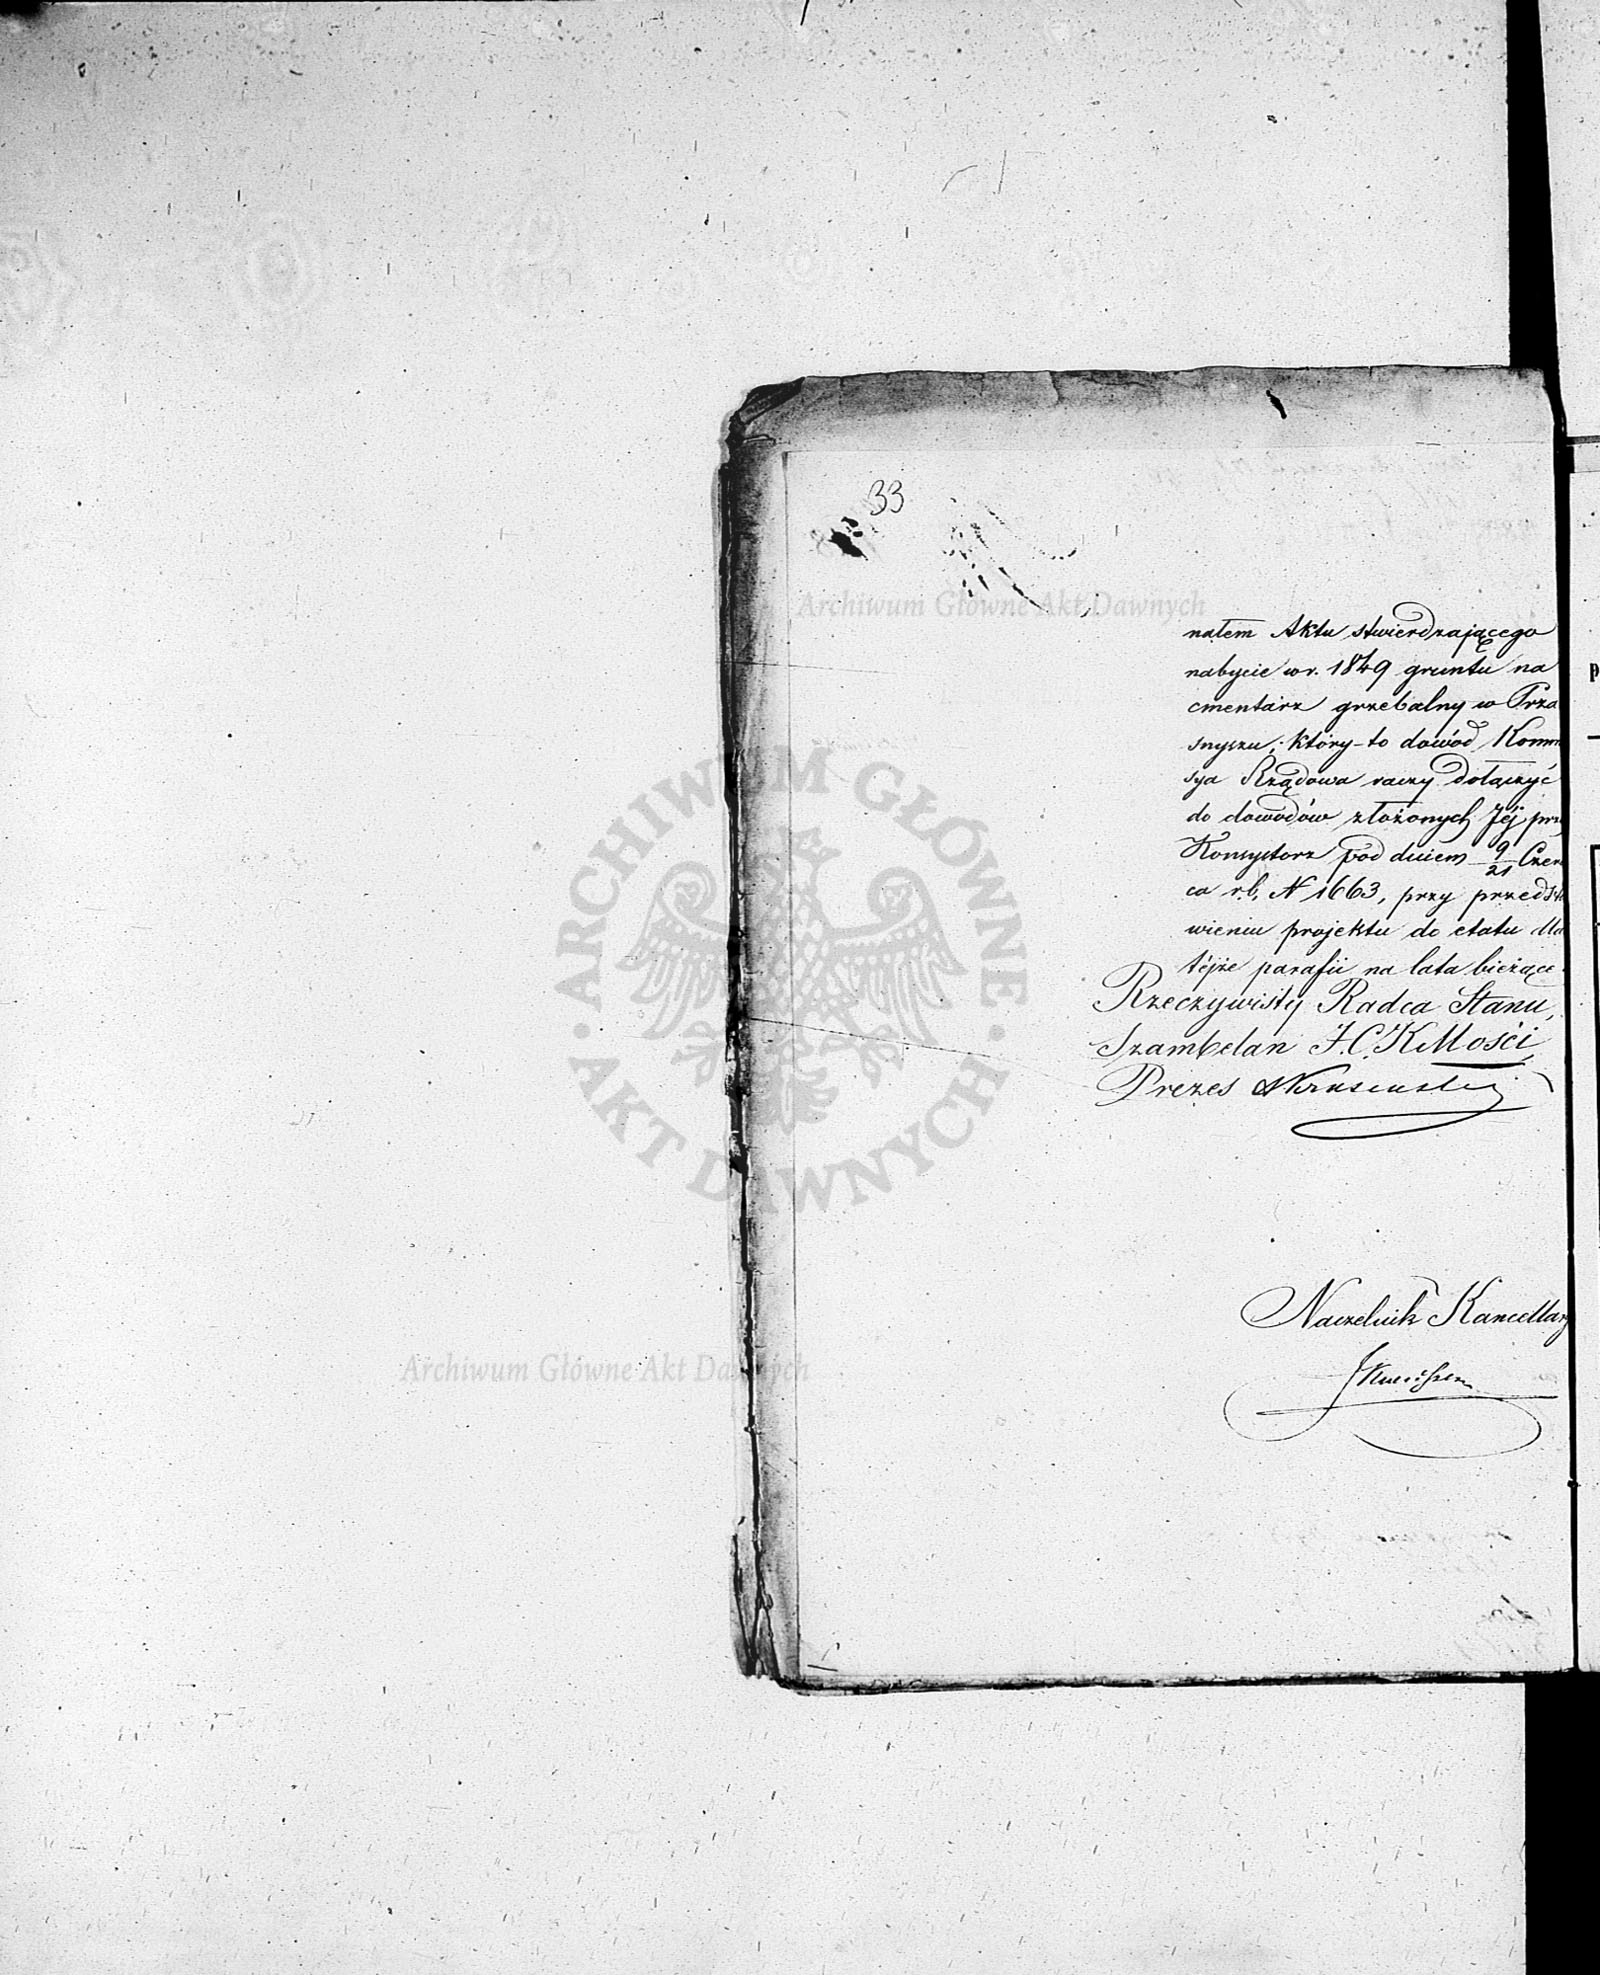 33
Archiwum Główne Akt Dawnych
nałem Aktu stwierdzającego
nabycie w r. 1849 gruntu na
cmentarz grzebalny w Prza
snyszu; który-to dowód Kommi
sya Rządowa raczy dołączyć
do dowodów złożonych Jéj prze
Konsystorz pod dniem 9/21 Czer
ca r.b. N 1663, przy przedsta
wieniu projektu do etatu dla
téjże parafii na lata bieżące.
Rzeczywisty Radca Stanu,
Szambelan J.C.K.Mości
Prezes
ARCHIWUM GŁÓWNE · AKT DAWNYCH ·
Naczelnik Kancellary
Archiwum Główne Akt Dawnych